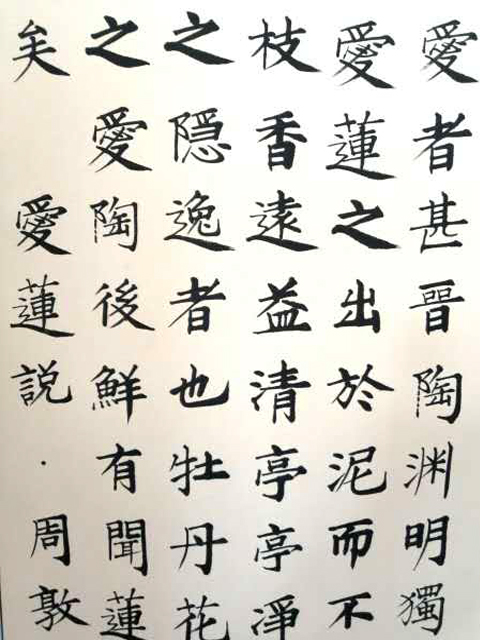 愛者甚晋陶渊明獨
愛蓮之出於泥而不
枝香遠益清亭亭淨
之隠逸者也牡丹花
之愛陶後鮮有聞蓮
矣愛蓮説·周敦